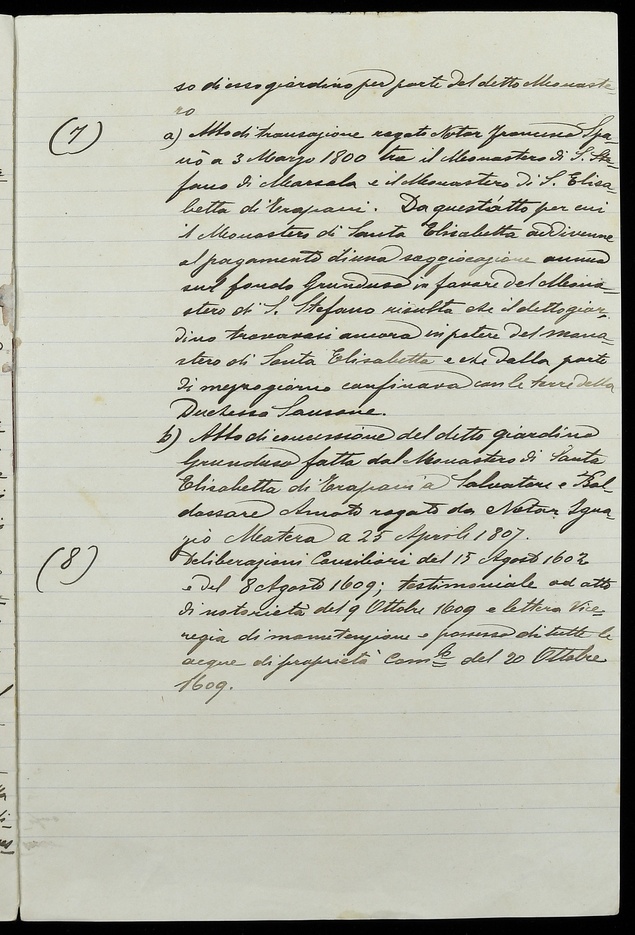 so di esso giardino per parte del detto Monaste-
ro
(7)
a) Atto di transazione rogato Notar Francesco Spa-
nò a 3 Marzo 1800 tra il Monastero di S. Ste-
fano di Marsala e il Monastero di S. Elisa-
betta di Trapani. Da quest'atto per cui
il Monastero di Santa Elisabetta addivenne
al pagamento di una soggiogazione annua
sul fondo Grunduso in favore del Mona-
stero di S. Stefano risulta che il detto giar-
dino trovavasi ancora in potere del mona-
stero di Santa Elisabetta e che dalla parte
di mezzogiorno confinava con le terre della
Duchessa Sansone.
b) Atto di concessione del detto giardino
Grunduso fatta dal Monastero di Santa
Elisabetta di Trapani a Salvatore e Bal-
dassare Amato rogato da Notar Igna-
zio Matera a 25 Aprile 1807.
(8)
Deliberazioni Consiliari del 15 Agosto 1602
e del 8 Agosto 1609; testimoniale ad atto
di notorietà del 9 Ottobre 1609 e lettera Vice-
regia di manutenzione e possesso di tutte le
acque di proprietà Com.le del 20 Ottobre
1609.